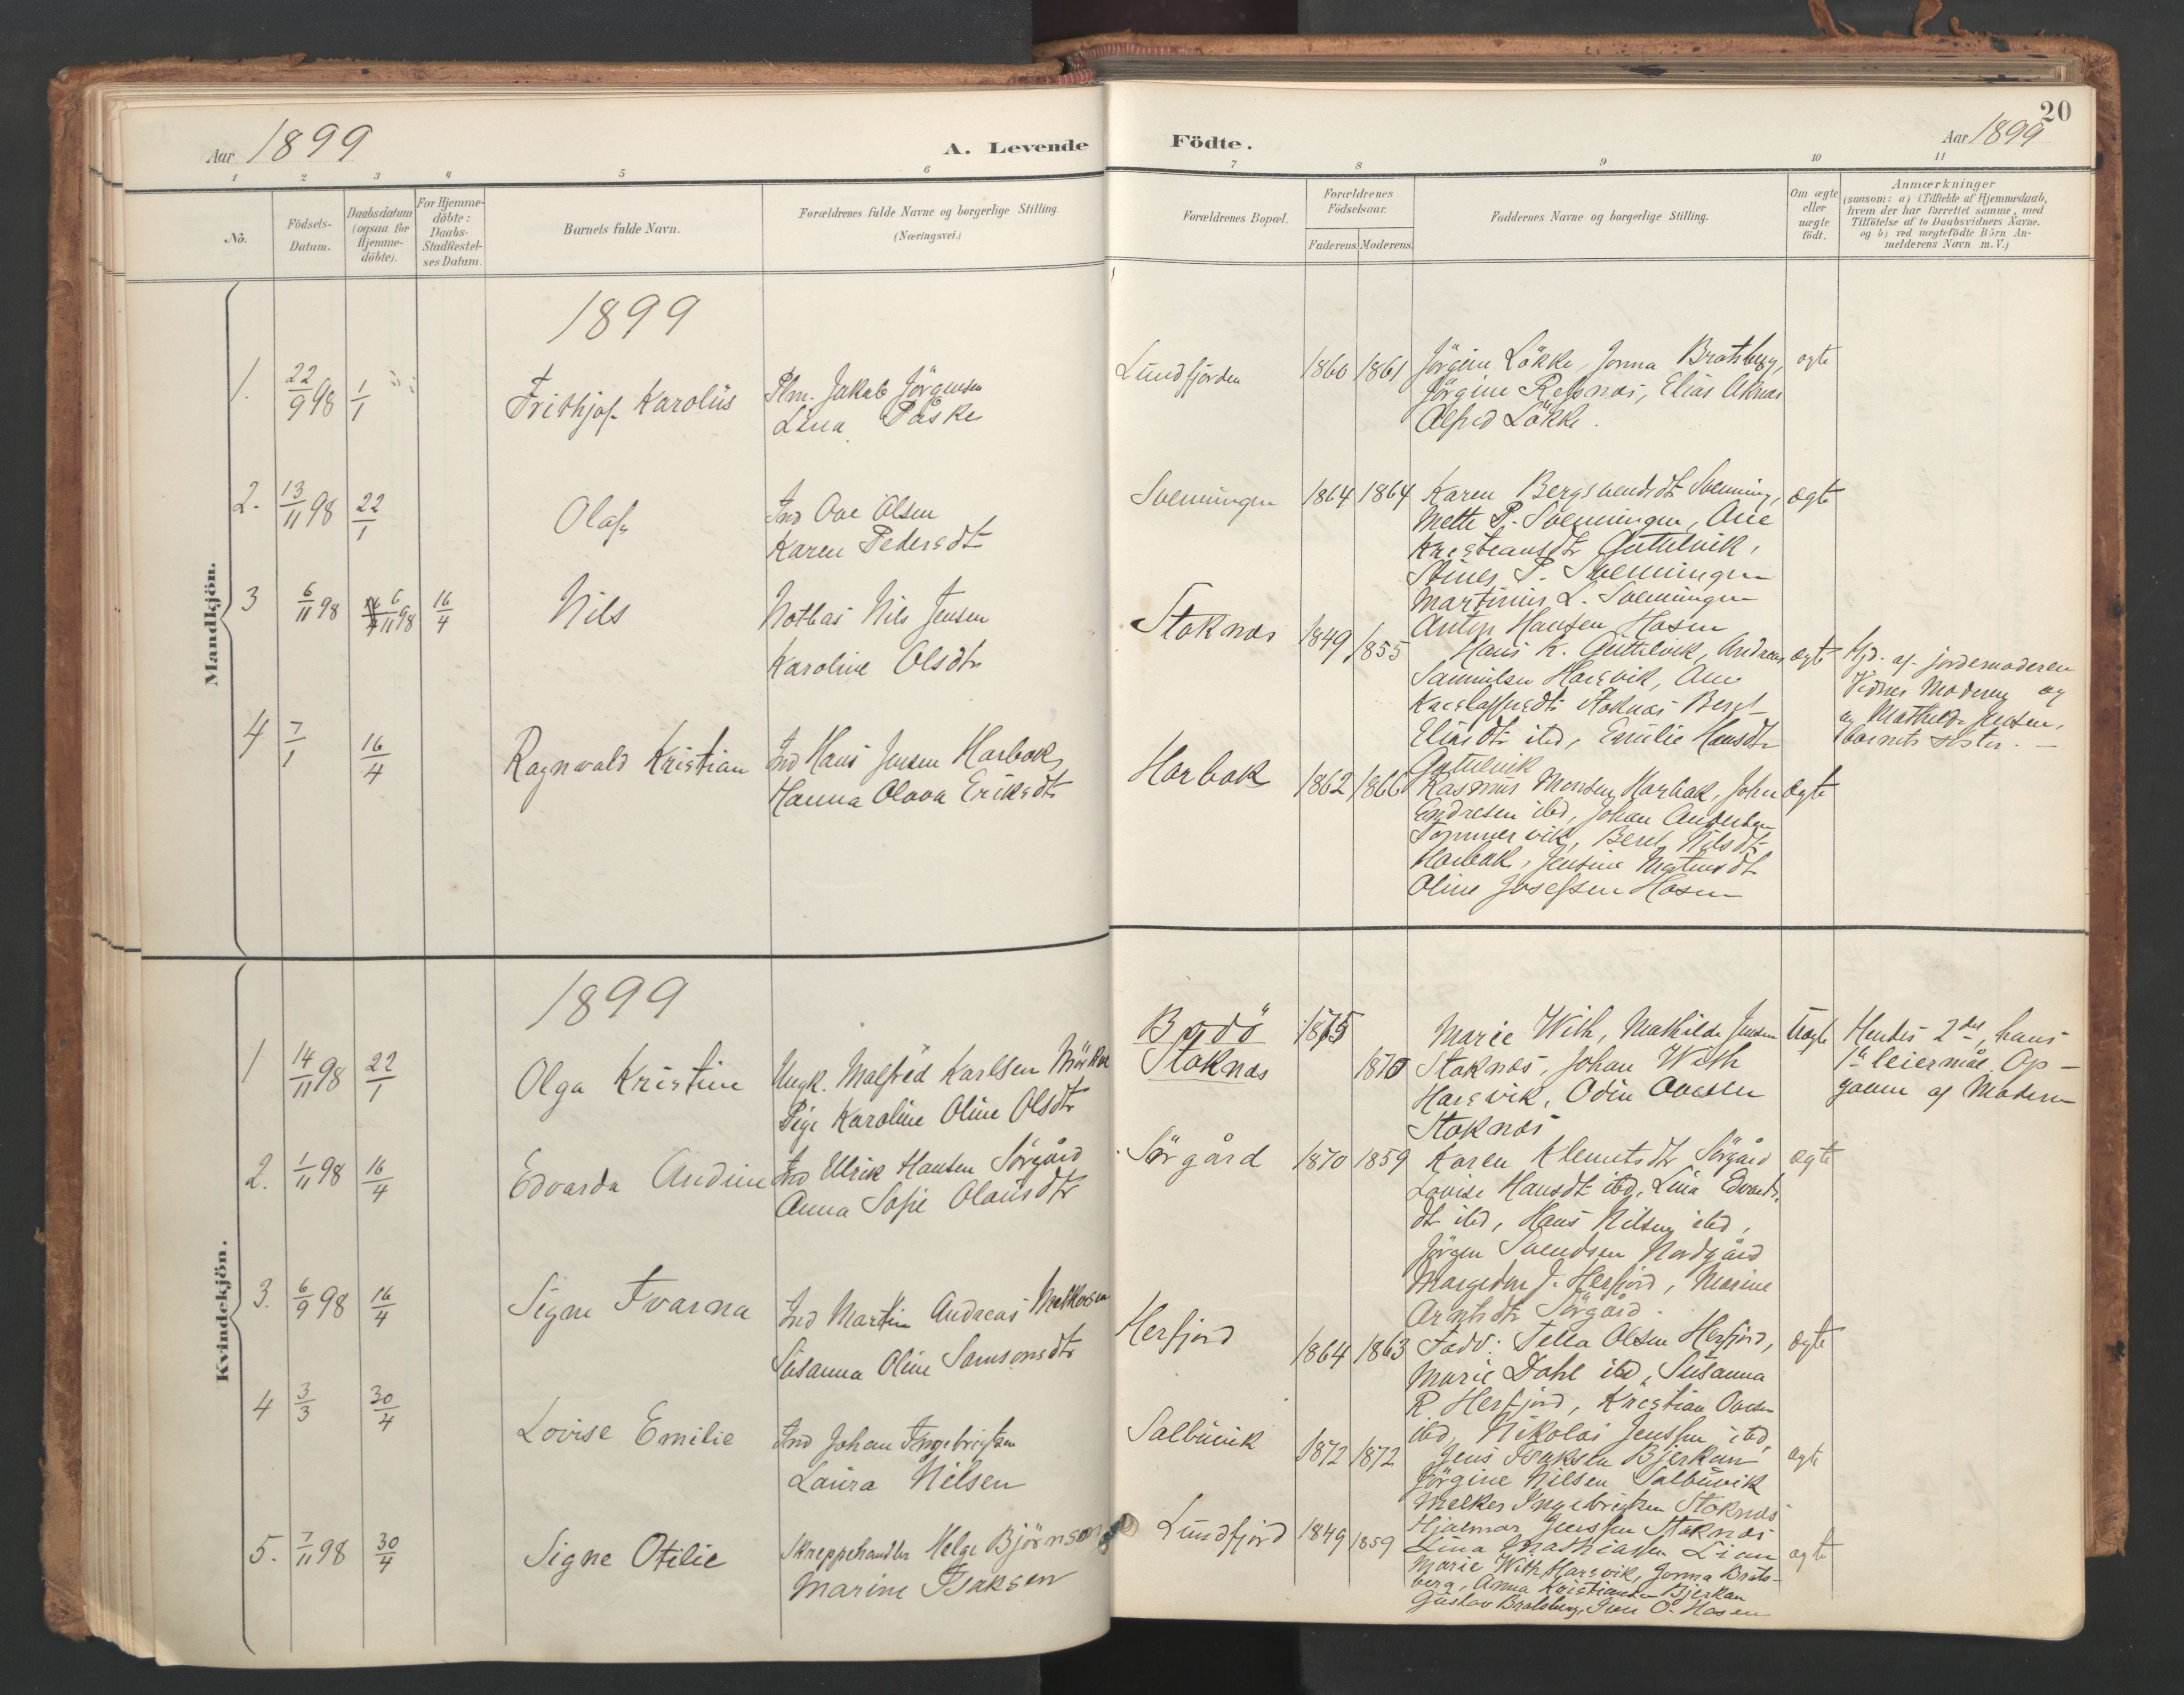 Aar 1899
A. Levende
Födte.
Aar 1899
20
1 2 3 4 5 6 7 8 9 10 11
No.
Födsels-
Datum.
Daabsdatum
(ogsaa for
Hjemme-
döbte).
For Hjemme-
döbte:
Daabs-
Stadfæstel-
ses Datum.
Barnets fulde Navn.
Forældrenes fulde Navne og borgerlige Stilling.
(Næringsvei.)
Forældrenes Bopæl.
Forældrenes
Födselsaar.
Faderens. Moderens.
Faddernes Navne og borgerlige Stilling.
Om ægte
eller
uægte
födt.
Anmærkninger
(saasom: a) i Tilfælde af Hjemmedaab,
hvem der har forrettet samme, med
Tilföielse af to Daabsvidners Navne.
og b) ved uægtefödte Börn An-
melderens Navn m.V.)
Mandkjön.
1899
1. 22/9 98 1/1 Frithjof Karolus
Plm. Jakob Jörgensen
Lina Påske
Lundfjorden 1860 1861
Jörgine Lökke, Jonna Bratsberg,
Jörgine Refsnæs, Elias Aknæs
Alfred Lökke.
ægte
2. 13/11 98 22/1 Olaf
Ind Ove Olsen
Karen Pedersdtr
Svenningen 1864 1864
Karen Bergsvendsdtr Svenning,
Mette P. Svenningen, Ane
Kristiansdtr Guttelvik,
P. Svenningen
Martinus L. Svenningen
Anton Hansen Hosen
ægte
3 6/11 98 6/11 98 16/4 Nils
Notbas Nils Jensen
Karoline Olsdtr
Stoknæs 1849 1855
Hans K. Guttelvik, Andreas
Samuelsen Harsvik, Ane
Kristoffersdtr Stoknæs Beret
Eliasdtr ibd, Emilie Hansdtr
Guttelvik
ægte
Hjd. af jordemoderen
Vidner Moderen og
og Mathilde Jensen,
barnets söster. —
4 7/1 16/4 Ragnvald Kristian
Ind Hans Jensen Harbak,
Hanna Olava Eriksdtr
Harbak 1862 1866
Rasmus Monsen Harbak, John
Endresen ibd, Johan Andersen
Tömmervik, Beret Nilsdtr
Harbak, Jensine Martinsdtr
Oline Josefsen Hosen
ægte
Kvindekjön.
1899
1 14/11 98 22/1 Olga Kristine
Ungk. Malfred Karlsen Mörkve
Pige Karoline Oline Olsdtr
Bodö 1875
Stoknæs 1870
Marie With, Mathilde Jensen
Stoknæs, Johan With
Harsvik, Odin Ovesen
Stoknæs
Uægte
Hendes 2det, hans
1te leiermål. Op-
gaven af Moderen
2. 1/11 98 16/4 Edvarda Andine
Ind Ulrik Hansen Sörgård
Anna Sofie Olausdtr
Sörgård 1870 1859
Karen Klemetsdtr Sörgård
Lovise Hansdtr ibd, Lina Edvards-
dtr ibd, Hans Nilsen ibd,
Jörgen Svendsen Nordgård
Margrethe J. Herfjord, Marine
Arntsdtr Sörgård.
ægte
3. 6/9 98 16/4 Signe Ivarna
Ind Martin Andreas Melkersen
Susanna Oline Samsonsdtr
Herfjord 1864 1863
Fadd: Pella Olsen Herfjord,
Marie Dahl ibd, Susanna
R. Herfjord, Kristian Ovesen
ibd, Nikolai Jenssen ibd,
ægte
4 3/3 30/4 Lovise Emilie
Ind Johan Ingebrigtsen
Laura Nilsen
Salbuvik 1872 1872
Jens Isaksen Bjerkan
Jörgine Nilsen Salbuvik
Melker Ingebrigtsen Stoknæs
Hjalmar Jenssen Stoknæs
Lina Mathiassen Lian
ægte
5. 7/11 98 30/4 Signe Otilie
Skreppehandler Helge Björnson
Marine Isaksen
Lundfjord 1849 1859
Marie With Harsvik, Jonna Brats-
berg, Anna Kristiansen Bjerkan
Gustav Bratsberg, Iver O. Hosen
ægte